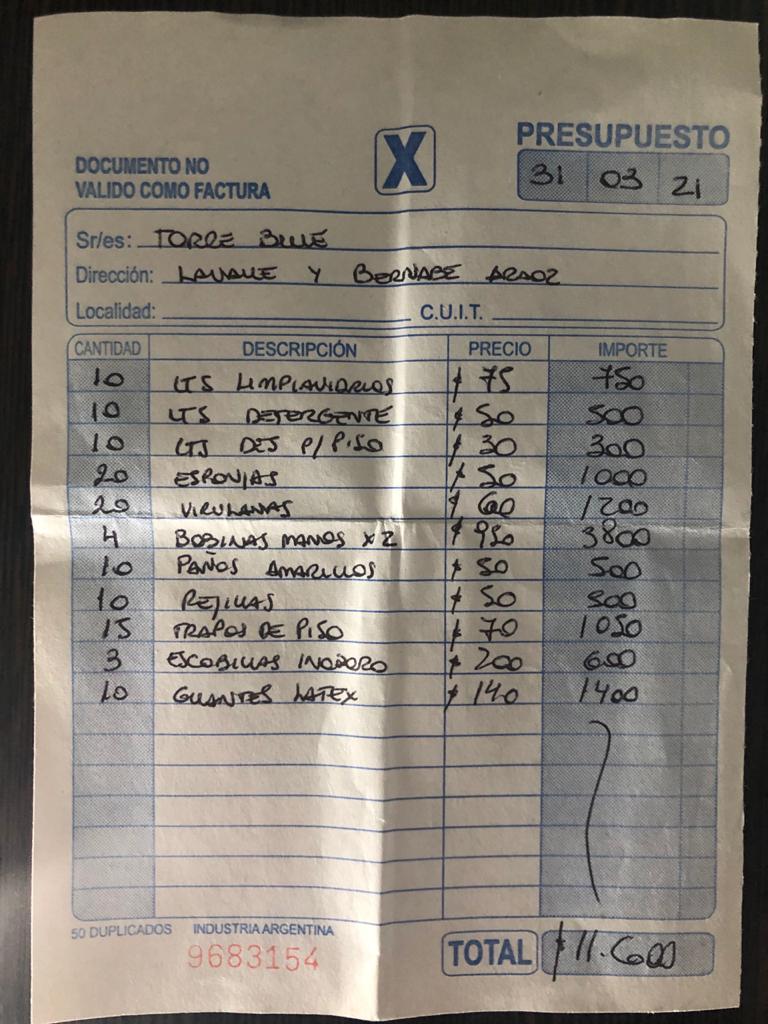 DOCUMENTO NO
VALIDO COMO FACTURA
X
PRESUPUESTO
31 03 21
Sr/es: TORRE BLUE
Dirección: LAVALLE Y BERNABE ARAOZ
Localidad: C.U.I.T.
CANTIDAD DESCRIPCIÓN PRECIO IMPORTE
10 LTS LIMPIAVIDRIOS $ 75 750
10 LTS DETERGENTE $ 50 500
10 LTS DES P/ PISO $ 30 300
20 ESPONJAS $ 50 1000
20 VIRULANAS $ 60 1200
4 BOBINAS MANOS X 2 $ 950 3800
10 PAÑOS AMARILLOS $ 50 500
10 REJILLAS $ 50 500
15 TRAPOS DE PISO $ 70 1050
3 ESCOBILLAS INODORO $ 200 600
10 GUANTES LATEX $ 140 1400
50 DUPLICADOS INDUSTRIA ARGENTINA
9683154
TOTAL $ 11.600